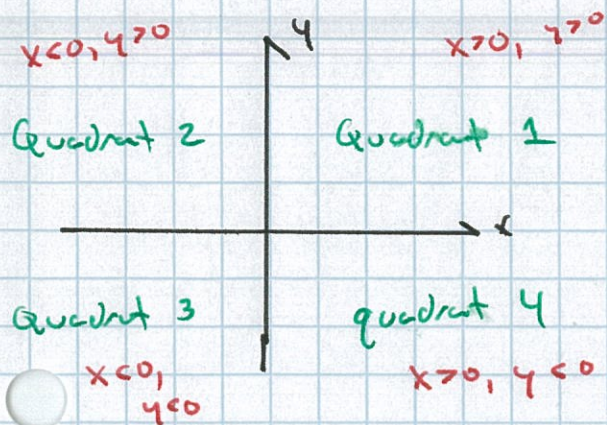 y
x<0, y>0
x>0, y>0
Quadrant 2
Quadrant 1
x
Quadrant 3
quadrant 4
x<0,
y<0
x>0, y<0